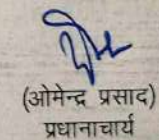 (ओमेन्द्र प्रसाद)
प्रधानाचार्य